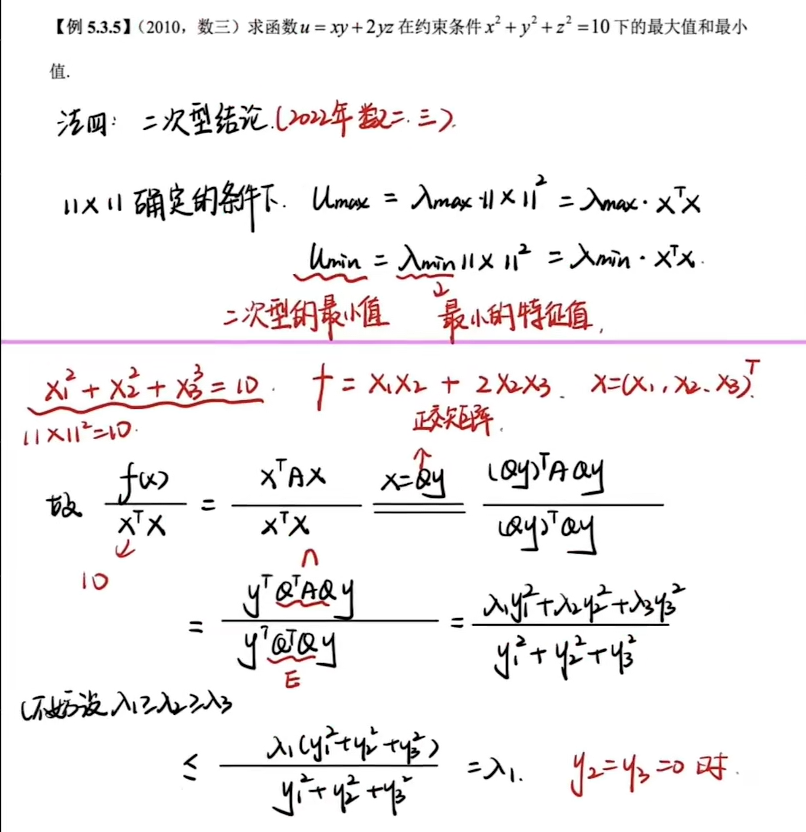 【例 5.3.5】(2010，数三) 求函数 u = xy + 2yz 在约束条件 x² + y² + z² = 10 下的最大值和最小
值.
法四: 二次型结论.(2022年数二.三).
||x|| 确定的条件下. Umax = λmax·||x||² = λmax·xᵀx
Umin = λmin||x||² = λmin·xᵀx.
二次型的最小值 最小的特征值,
x₁² + x₂² + x₃³ = 10. f = x₁x₂ + 2x₂x₃. x=(x₁,x₂,x₃)ᵀ.
||x||²=10. 正交矩阵.
故 f(x)/xᵀx = xᵀAx/xᵀx x=Qy (Qy)ᵀAQy/(Qy)ᵀQy
10
= yᵀQᵀAQy/yᵀQᵀQy = λ₁y₁²+λ₂y₂²+λ₃y₃²/y₁²+y₂²+y₃²
Λ
E
(不妨设 λ₁≥λ₂≥λ₃
≤ λ₁(y₁²+y₂²+y₃²)/y₁²+y₂²+y₃² = λ₁. y₂=y₃=0 时.